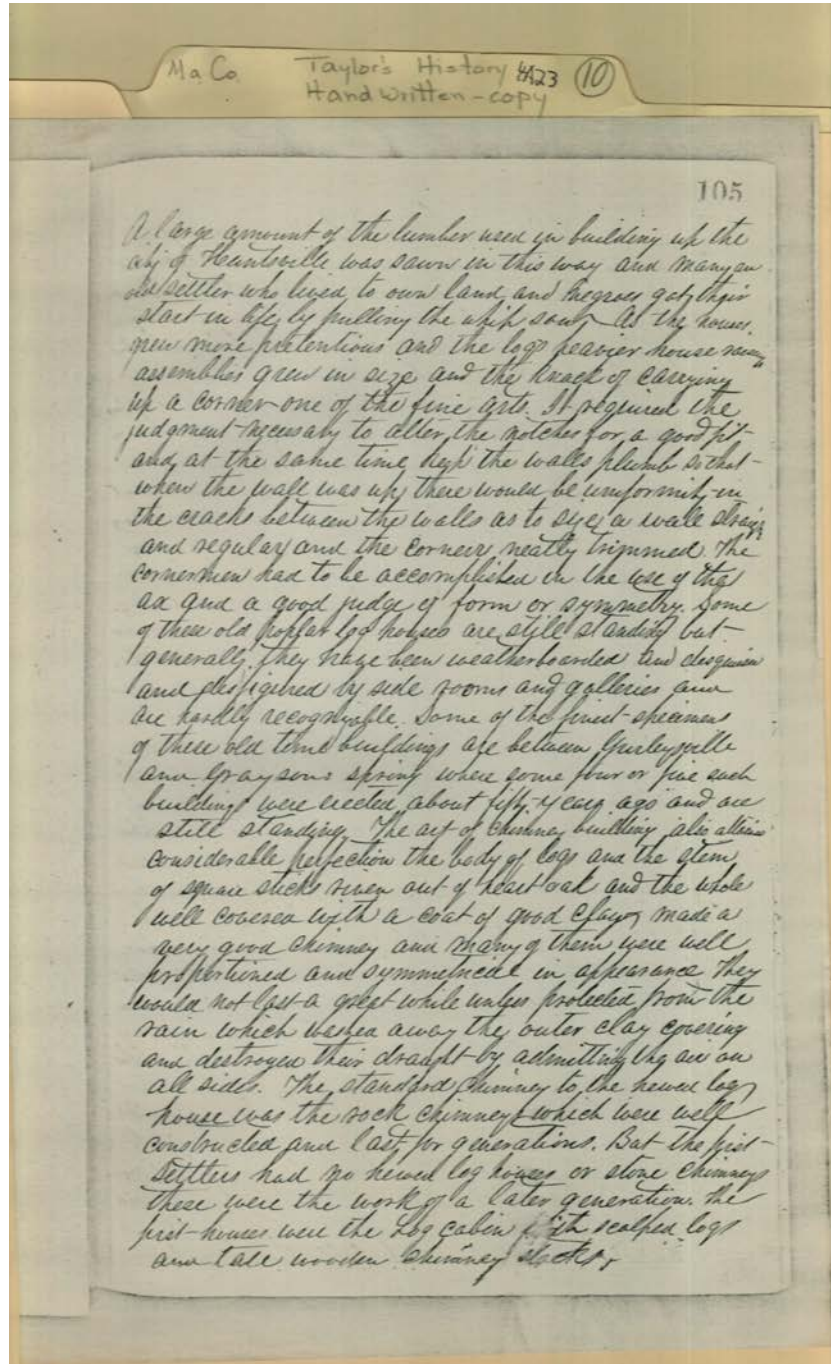 Ma Co. Taylor's History 4A23 10
Hand written - copy
105
A large amount of the lumber used in building up the
city of Huntsville was sawn in this way and many an
old settler who lived to own land and negroes got their
start in life by pulling the whip saw. As the houses
grew more pretentious and the logs heavier house raising
assemblies grew in size and the knack of carrying
up a corner one of the fine arts. It required the
judgment necessary to alter the notches for a good fit
and at the same time keep the walls plumb so that
when the wall was up there would be uniformity in
the cracks between the walls as to size, a wall straight
and regular and the corners neatly trimmed. The
cornermen had to be accomplished in the use of the
ax and a good judge of form or symmetry. Some
of these old poplar log houses are still standing but
generally they have been weatherboarded and disguised
and disfigured by side rooms and galleries and
are hardly recognizable. Some of the finest specimens
of these old time buildings are between Gurleysville
and Graysons spring where some four or five such
buildings were erected about fifty years ago and are
still standing. The art of chimney building also attained
considerable perfection the body of logs and the stem
of square sticks riven out of heart oak and the whole
well covered with a coat of good clay, made a
very good chimney and many of them were well
proportioned and symmetrical in appearance They
would not last a great while unless protected from the
rain which washed away the outer clay covering
and destroyed their draught by admitting the air on
all sides. The standard chimney to the hewed log
house was the rock chimney which were well
constructed and last for generations. But the first
settlers had no hewed log houses or stone chimneys
these were the work of a later generation. The
first houses were the Log cabin with scalped logs
and tall wooden chimney stacks.